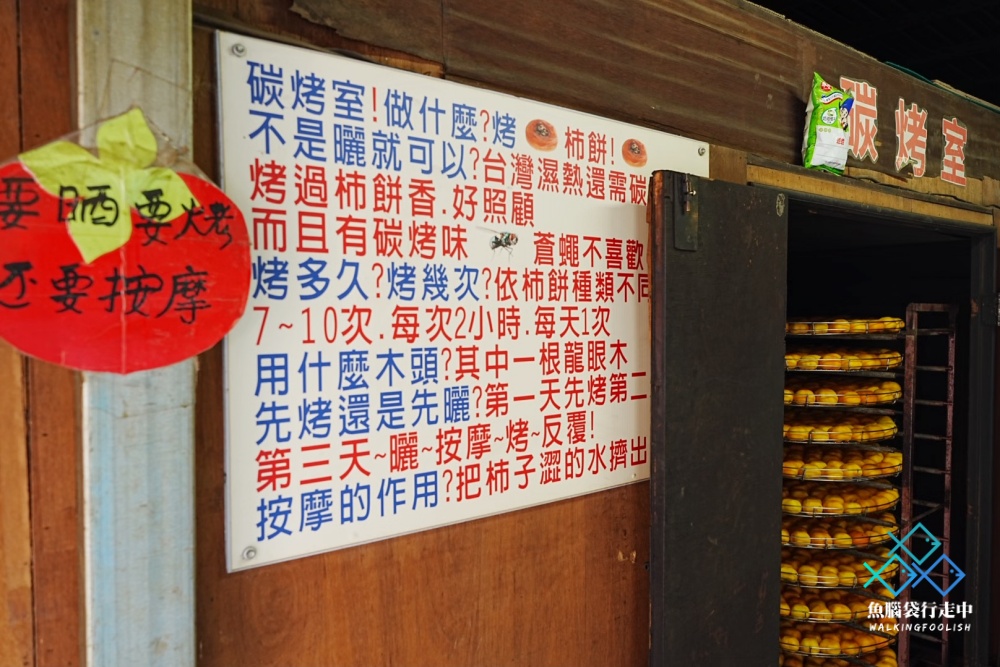 要晒要烤
还要按摩
碳烤室!做什麼?烤 柿餅!
不是曬就可以?台灣濕熱還需碳
烤過柿餅香.好照顧
而且有碳烤味 蒼蠅不喜歡
烤多久?烤幾次?依柿餅種類不同
7~10次.每次2小時.每天1次
用什麼木頭?其中一根龍眼木
先烤還是先曬?第一天先烤第二
第三天~曬~按摩~烤~反覆!
按摩的作用?把柿子澀的水擠出
碳烤室
魚腦袋行走中
WALKINGFOOLISH